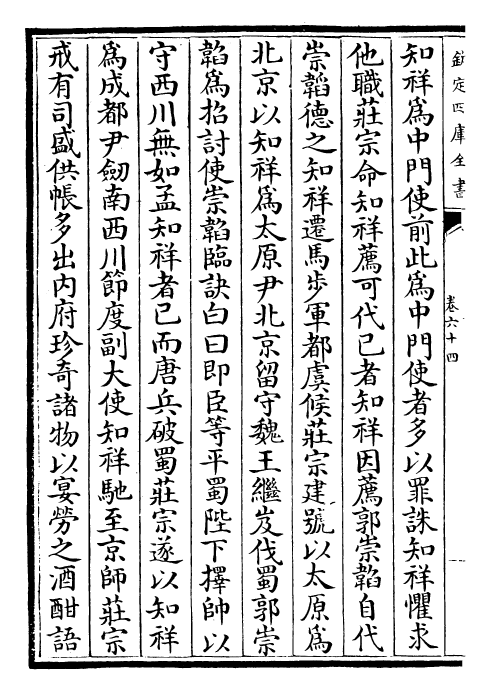 欽定四庫全書
卷六十四
知祥為中門使前此為中門使者多以罪誅知祥懼求
他職莊宗命知祥薦可代已者知祥因薦郭崇韜自代
崇韜德之知祥遷馬步軍都虞候莊宗建號以太原為
北京以知祥為太原尹北京留守魏王繼岌伐蜀郭崇
韜為招討使崇韜臨訣白曰即臣等平蜀陛下擇帥以
守西川無如孟知祥者已而唐兵破蜀莊宗遂以知祥
為成都尹劒南西川節度副大使知祥馳至京師莊宗
戒有司盛供帳多出内府珍奇諸物以宴勞之酒酣語